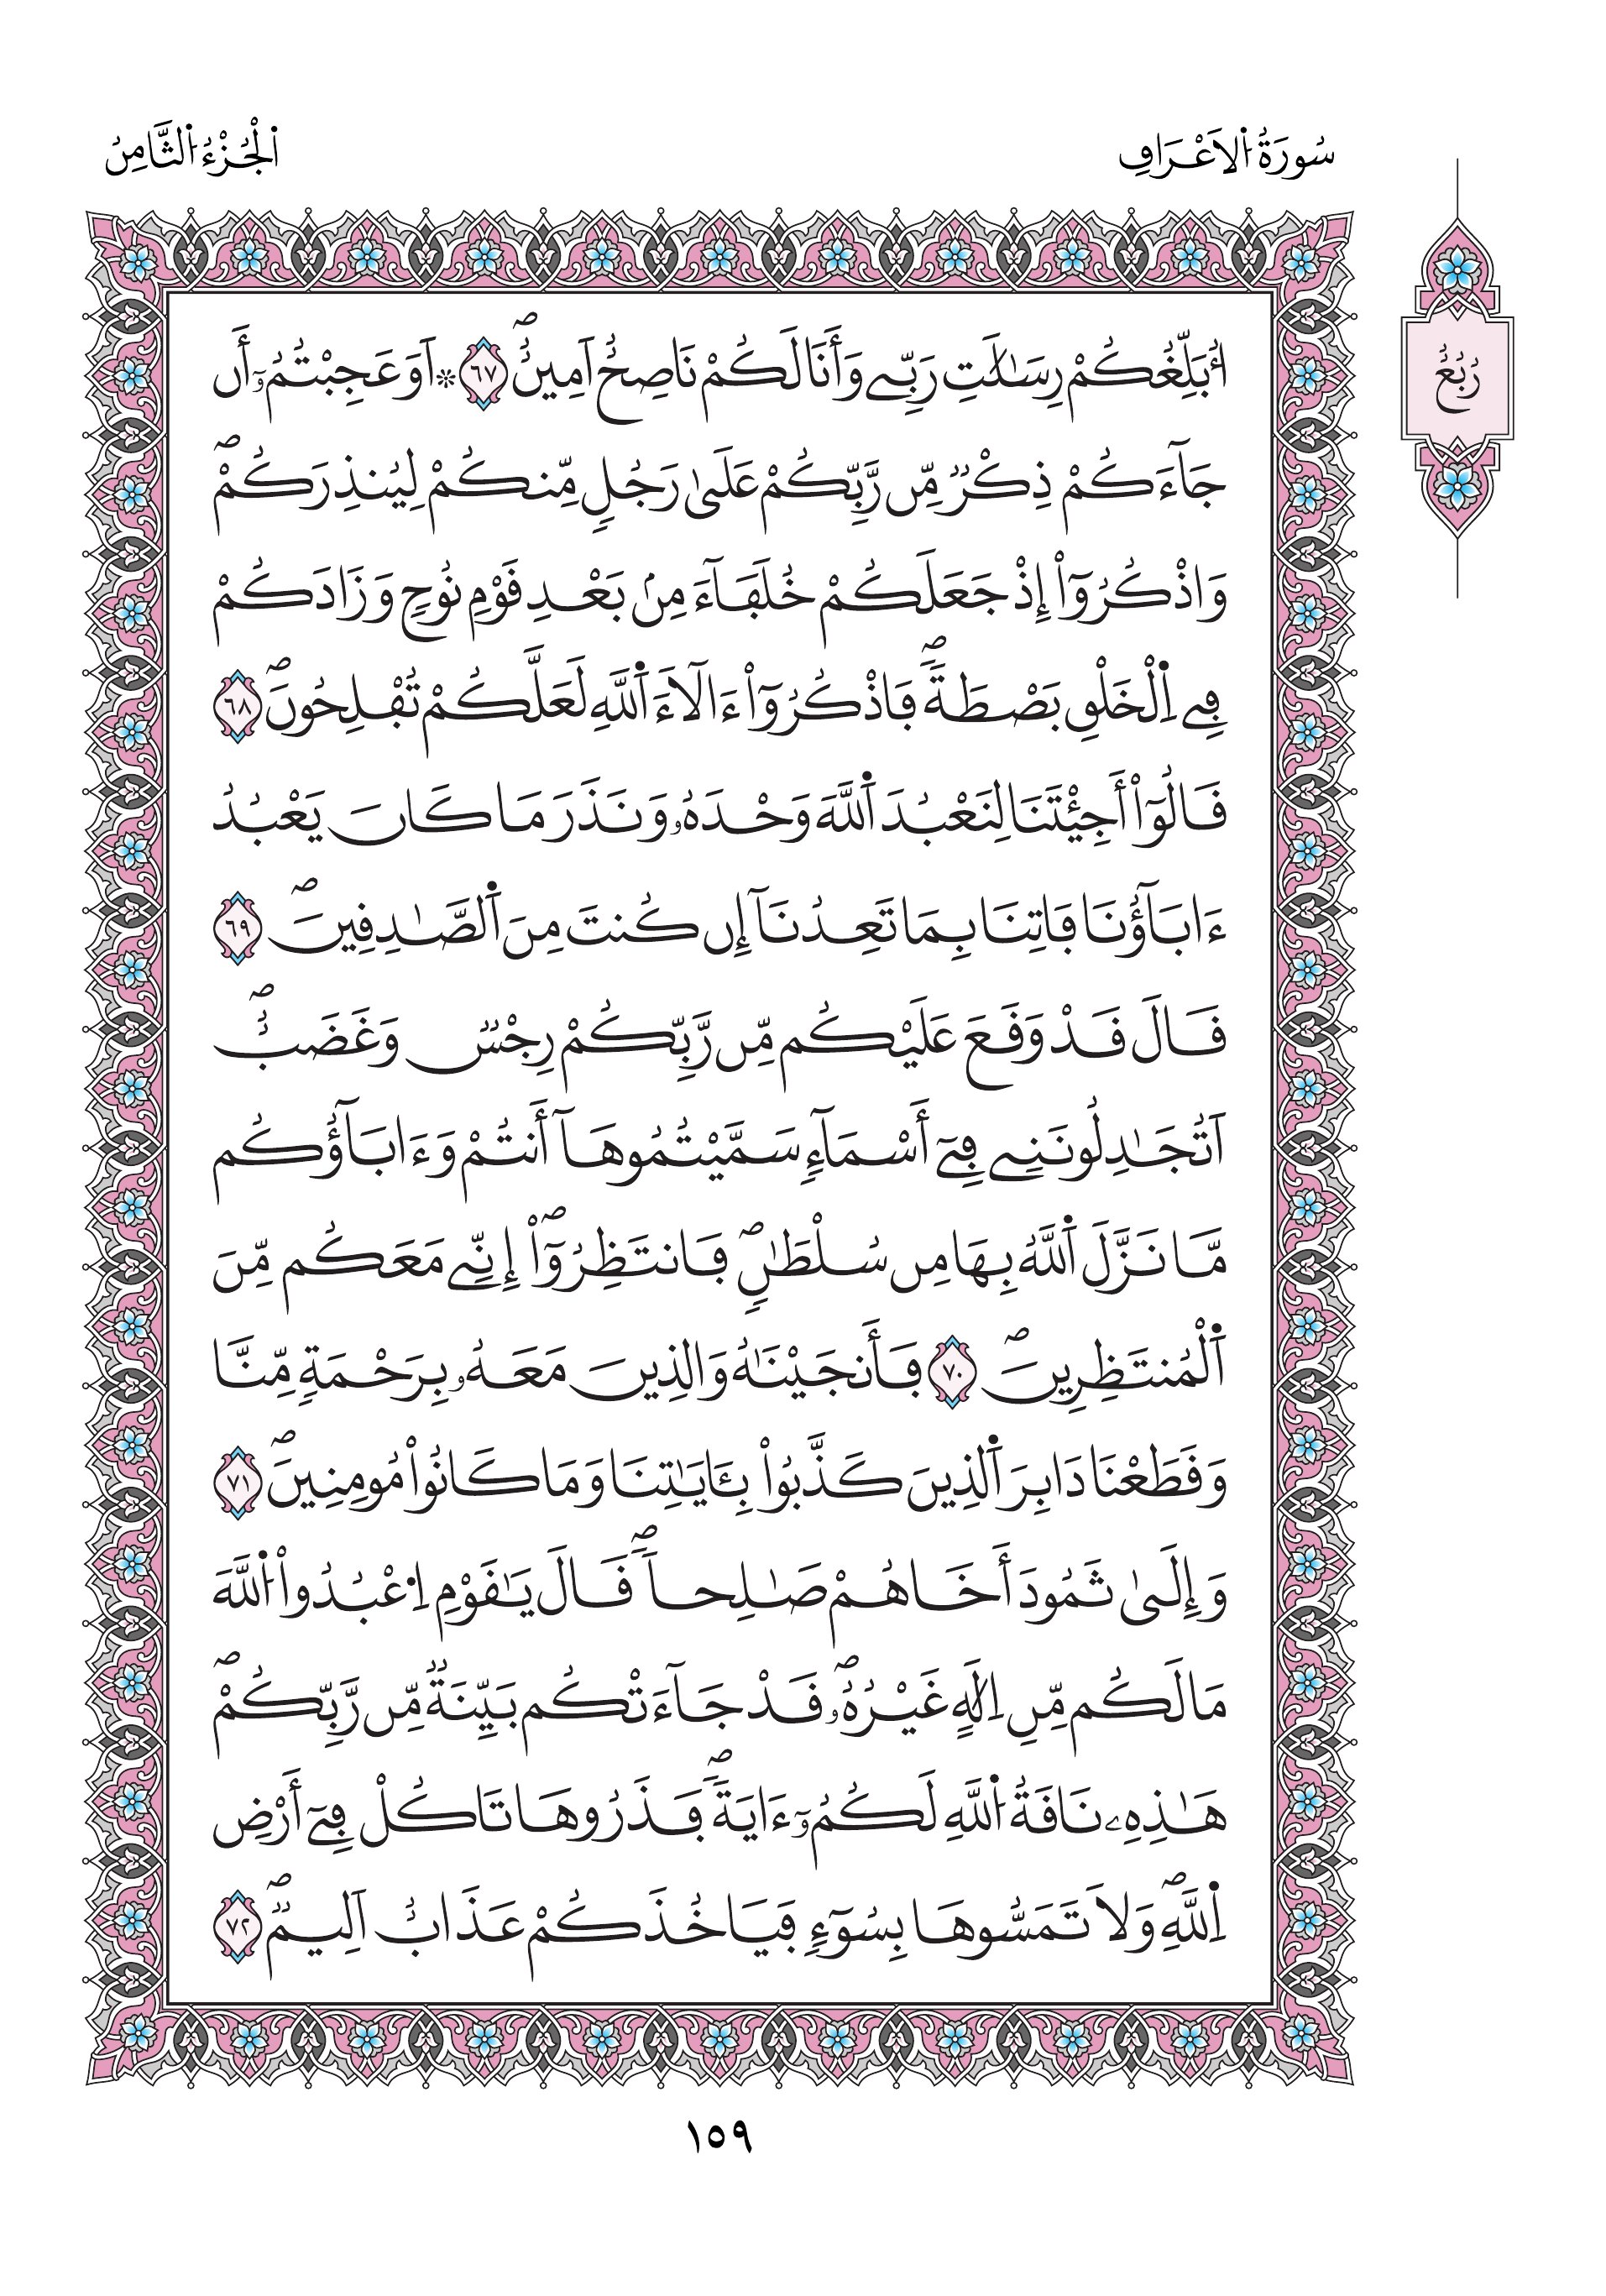 سُورَةُ اُ۬لَاعْرَافِ
اَ۬لْجُزْءُ اُ۬لثَّامِنُ
رُبُعٌ
أُبَلِّغُكُمْ رِسَٰلَٰتِ رَبِّے وَأَنَا لَكُمْ نَاصِحٌ اَمِينٌۖ ٦٧ ۞ اَوَعَجِبْتُمُۥٓ أَن
جَآءَكُمْ ذِكْرٞ مِّن رَّبِّكُمْ عَلَيٰ رَجُلٖ مِّنكُمْ لِيُنذِرَكُمْۖ
وَاذْكُرُوٓاْ إِذْ جَعَلَكُمْ خُلَفَآءَ مِنۢ بَعْدِ قَوْمِ نُوحٖ وَزَادَكُمْ
فِے اِ۬لْخَلْقِ بَصْۜطَةٗۖ فَاذْكُرُوٓاْ ءَالَآءَ اَ۬للَّهِ لَعَلَّكُمْ تُفْلِحُونَۖ ٦٨
قَالُوٓاْ أَجِئْتَنَا لِنَعْبُدَ اَ۬للَّهَ وَحْدَهُۥ وَنَذَرَ مَا كَانَ يَعْبُدُ
ءَابَآؤُنَا فَاتِنَا بِمَا تَعِدُنَآ إِن كُنتَ مِنَ اَ۬لصَّٰدِقِينَۖ ٦٩
قَالَ قَدْ وَقَعَ عَلَيْكُم مِّن رَّبِّكُمْ رِجْسٞ وَغَضَبٌۖ
اَتُجَٰدِلُونَنِے فِےٓ أَسْمَآءٖ سَمَّيْتُمُوهَآ أَنتُمْ وَءَابَآؤُكُم
مَّا نَزَّلَ اَ۬للَّهُ بِهَا مِن سُلْطَٰنٖۖ فَانتَظِرُوٓاْۖ إِنِّے مَعَكُم مِّنَ
اَ۬لْمُنتَظِرِينَۖ ٧٠ فَأَنجَيْنَٰهُ وَالذِينَ مَعَهُۥ بِرَحْمَةٖ مِّنَّا
وَقَطَعْنَا دَابِرَ اَ۬لذِينَ كَذَّبُواْ بِـَٔايَٰتِنَا وَمَا كَانُواْ مُومِنِينَۖ ٧١
وَإِلَيٰ ثَمُودَ أَخَاهُمْ صَٰلِحاٗۖ قَالَ يَٰقَوْمِ اِ۟عْبُدُواْ اُ۬للَّهَ
مَا لَكُم مِّنِ اِلَٰهٍ غَيْرُهُۥۖ قَدْ جَآءَتْكُم بَيِّنَةٞ مِّن رَّبِّكُمْۖ
هَٰذِهِۦ نَاقَةُ اُ۬للَّهِ لَكُمُۥٓ ءَايَةٗۖ فَذَرُوهَا تَاكُلْ فِےٓ أَرْضِ
اِ۬للَّهِۖ وَلَا تَمَسُّوهَا بِسُوٓءٖ فَيَاخُذَكُمْ عَذَابٌ اَلِيمٞۖ ٧٢
١٥٩